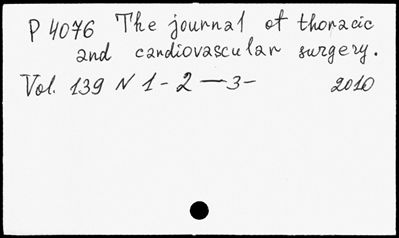 P 4076 The journal of thoracic
and cardiovascular surgery.
Vol. 139 N 1 - 2 — 3 - 2010